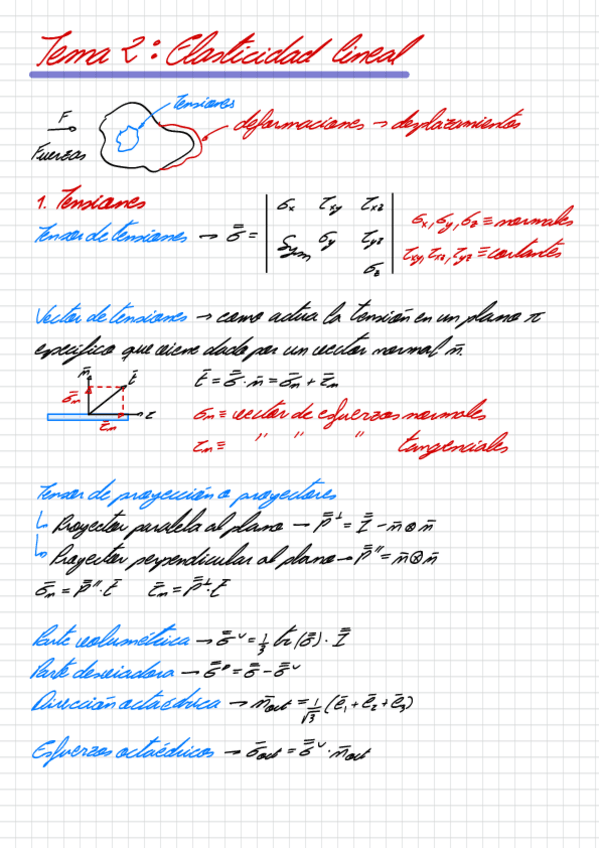 Tema 2: Elasticidad lineal
Tensiones
F
Fuerzas
deformaciones → desplazamientos
1. Tensiones
Tensor de tensiones → σ̿ = | σx τxy τxz
Sym σy τyz
σz |
σx, σy, σz ≡ normales
τxy, τxz, τyz ≡ cortantes
Vector de tensiones → como actua la tensión en un plano π
especifico que viene dado por un vector normal n̄.
n̄ t̄ σ̄n τ̄n τ
t̄ = σ̿ · n̄ = σ̄n + τ̄n
σn ≡ vector de esfuerzos normales
τn ≡ " " " tangenciales
Tensor de proyección o proyectores
↳ Proyector paralela al plano → P̿⊥ = I̿ − n̄ ⊗ n̄
↳ Proyector perpendicular al plano → P̿" = n̄ ⊗ n̄
σ̄n = P̿" · t̄ τ̄n = P̿⊥ · t̄
Parte volumétrica → σ̿ᵛ = 1/3 tr(σ̿) · I̿
Parte desviadora → σ̿ᴰ = σ̿ − σ̿ᵛ
Dirección octaédrica → n̄oct = 1/√3 (ē1 + ē2 + ē3)
Esfuerzos octaédricos → σ̄oct = σ̿ᵛ · n̄oct